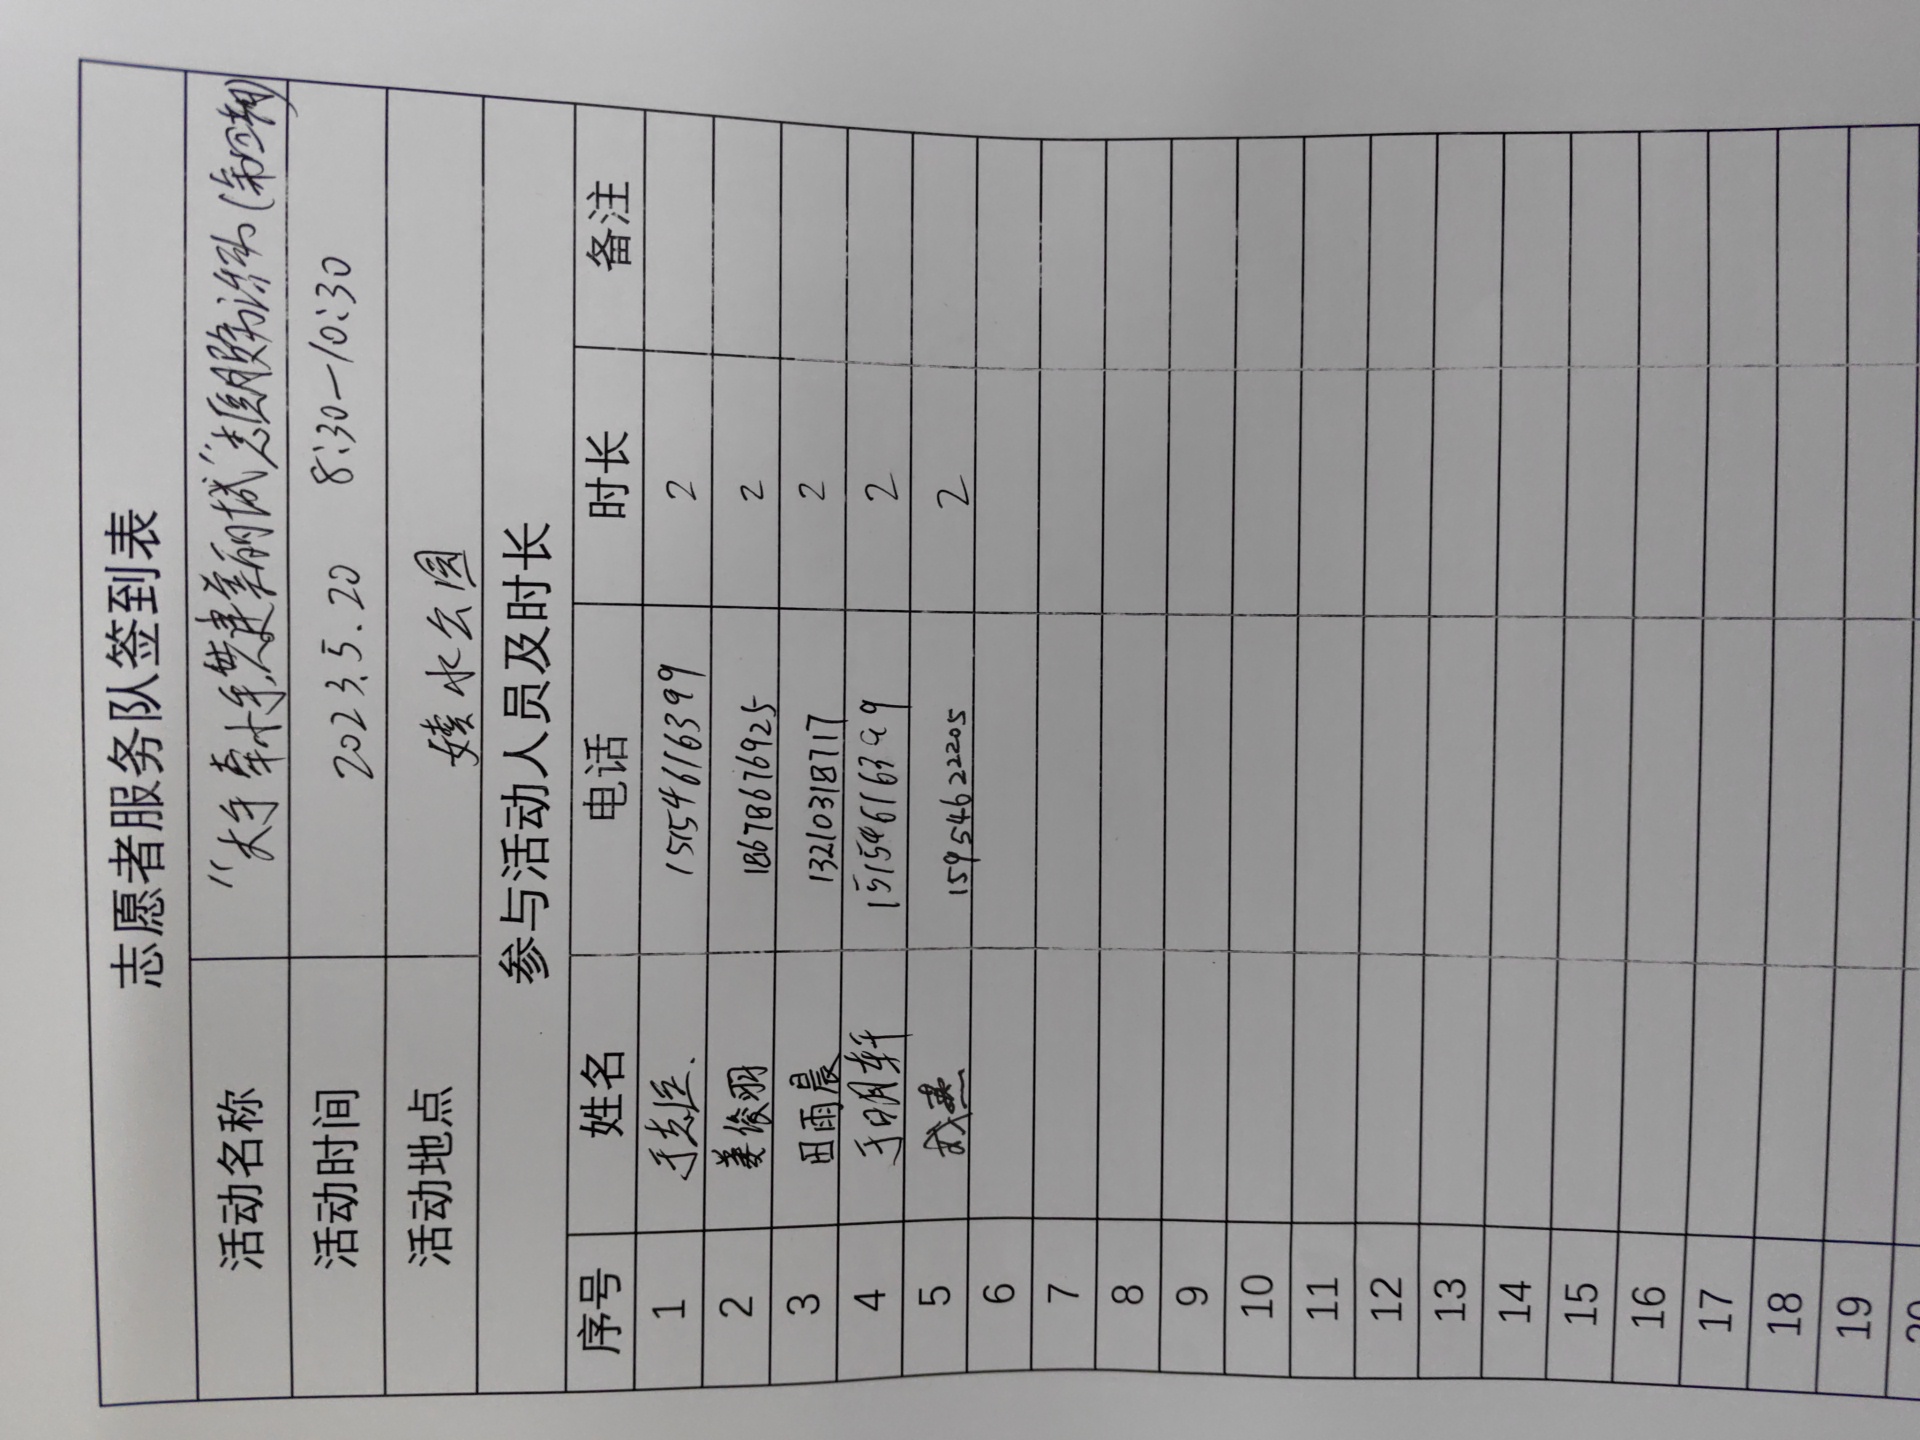 志愿者服务队签到表
活动名称 "大手牵小手,共建美丽城"志愿服务活动(第四期)
活动时间 2023.5.20 8:30—10:30
活动地点 水公园
参与活动人员及时长
序号 姓名 电话 时长 备注
1 于志 15154616399 2
2 姜俊羽 18678676925 2
3 田雨晨 13210318717 2
4 于明轩 15154616399 2
5 15954622205 2
6
7
8
9
10
11
12
13
14
15
16
17
18
19
20